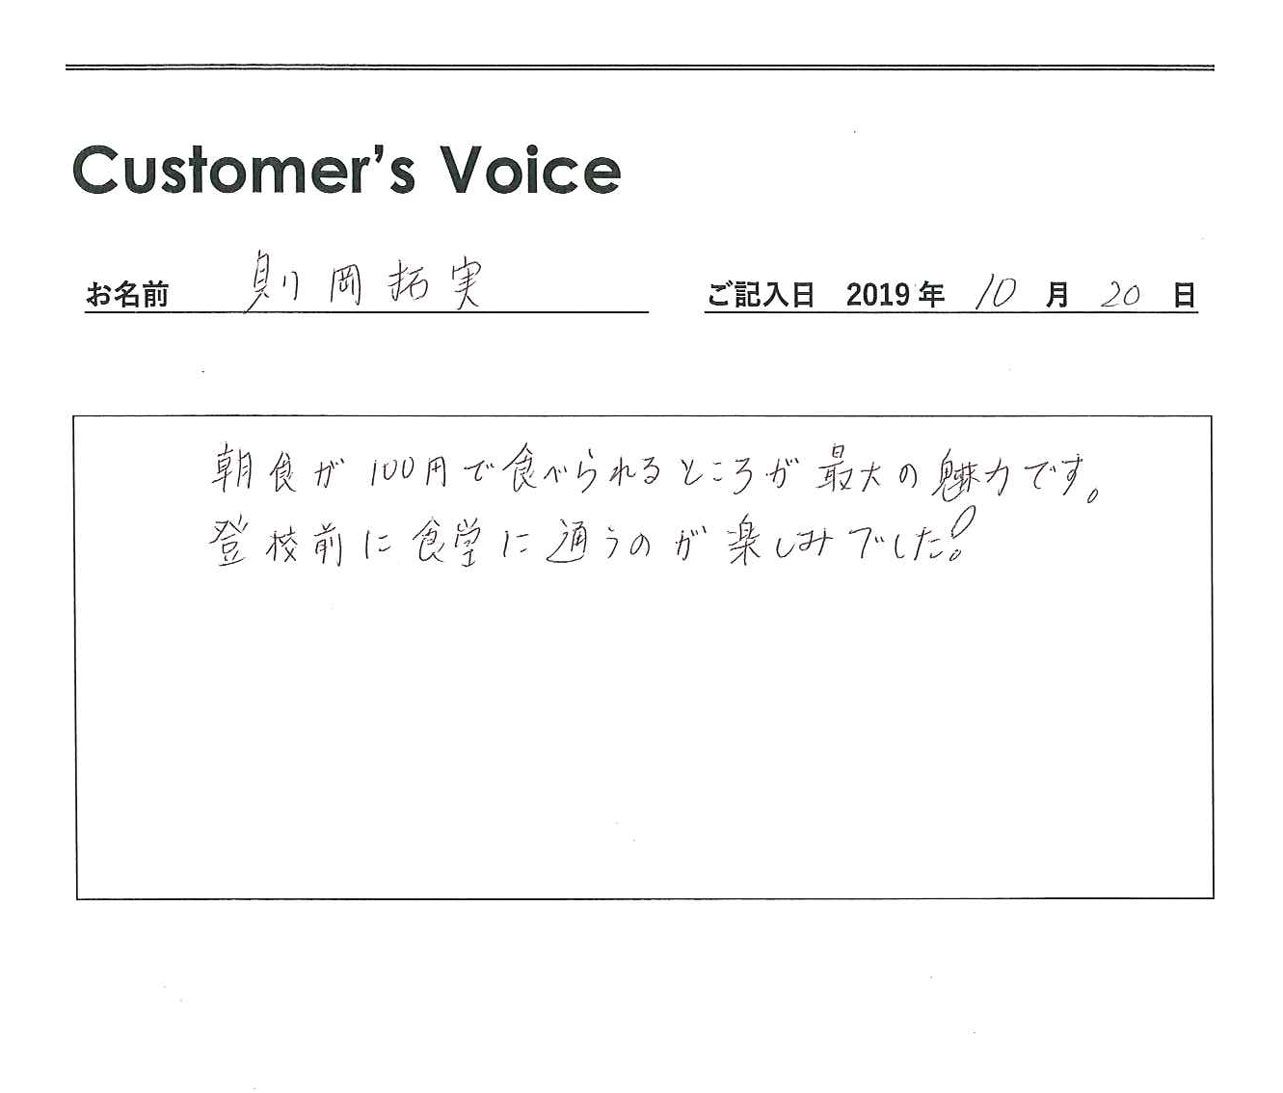 Customer's Voice
お名前 則岡拓実 ご記入日 2019年 10月 20日
朝食が100円で食べられるところが最大の魅力です。
登校前に食堂に通うのが楽しみでした!